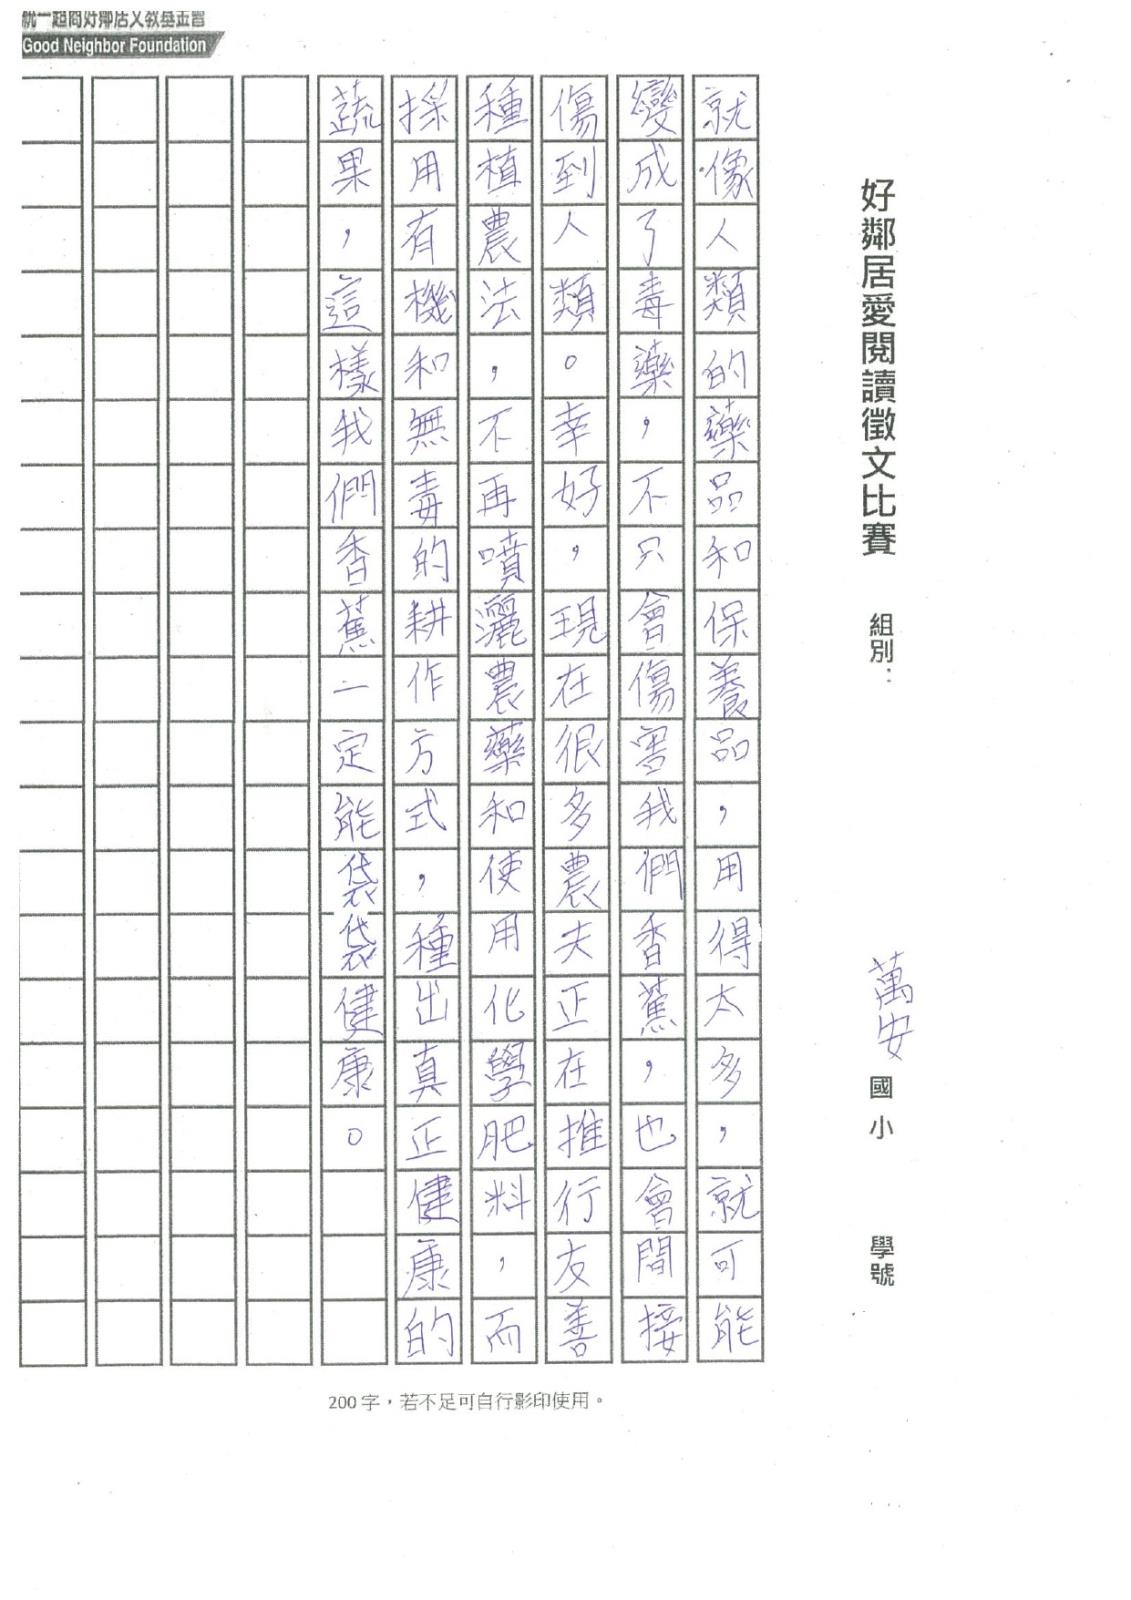 統一超商好鄰居文教基金會
Good Neighbor Foundation
好鄰居愛閱讀徵文比賽 組別： 萬安國小 學號
就像人類的藥品和保養品，用得太多，就可能
變成了毒藥，不只會傷害我們香蕉，也會間接
傷到人類。幸好，現在很多農夫正在推行友善
種植農法，不再噴灑農藥和使用化學肥料，而
採用有機和無毒的耕作方式，種出真正健康的
蔬果，這樣我們香蕉一定能袋袋健康。
200字，若不足可自行影印使用。